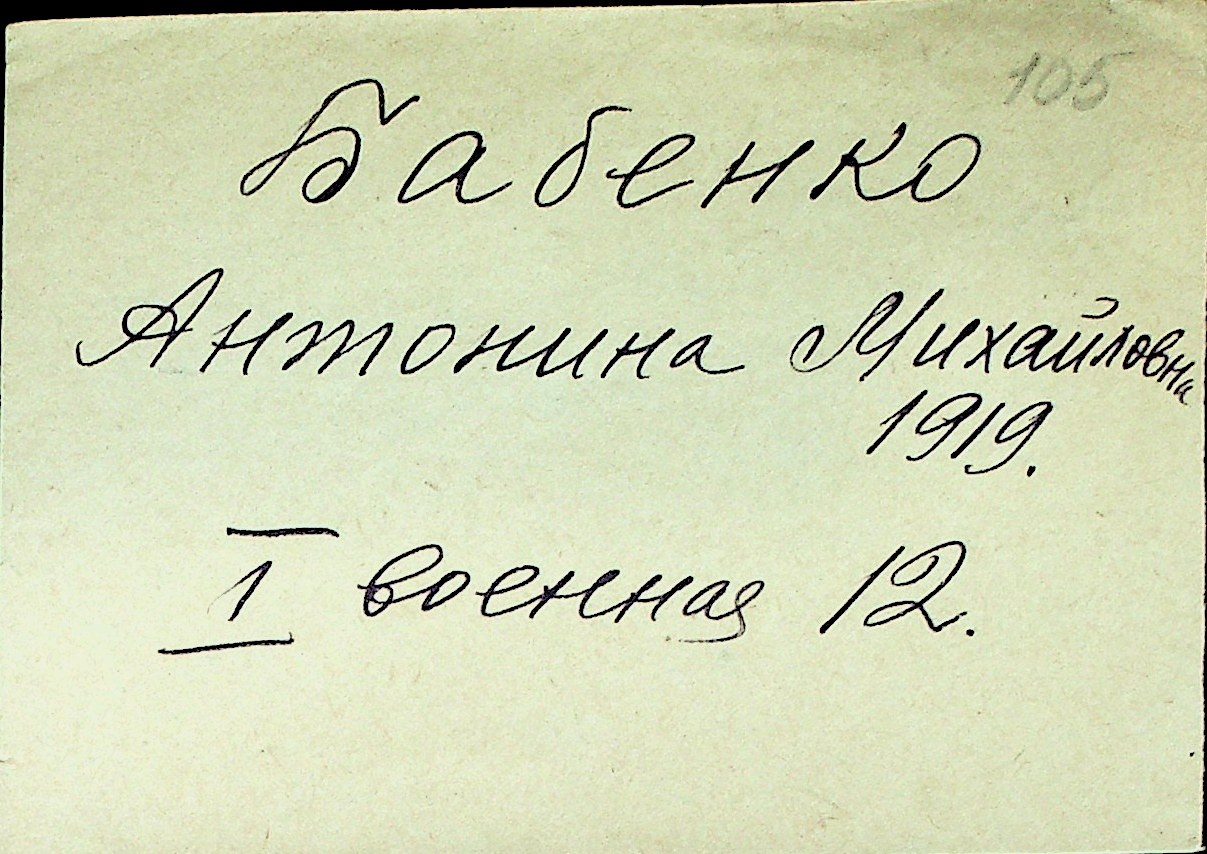 105
Бабенко
Антонина Михайловна
1919.
I военная 12.